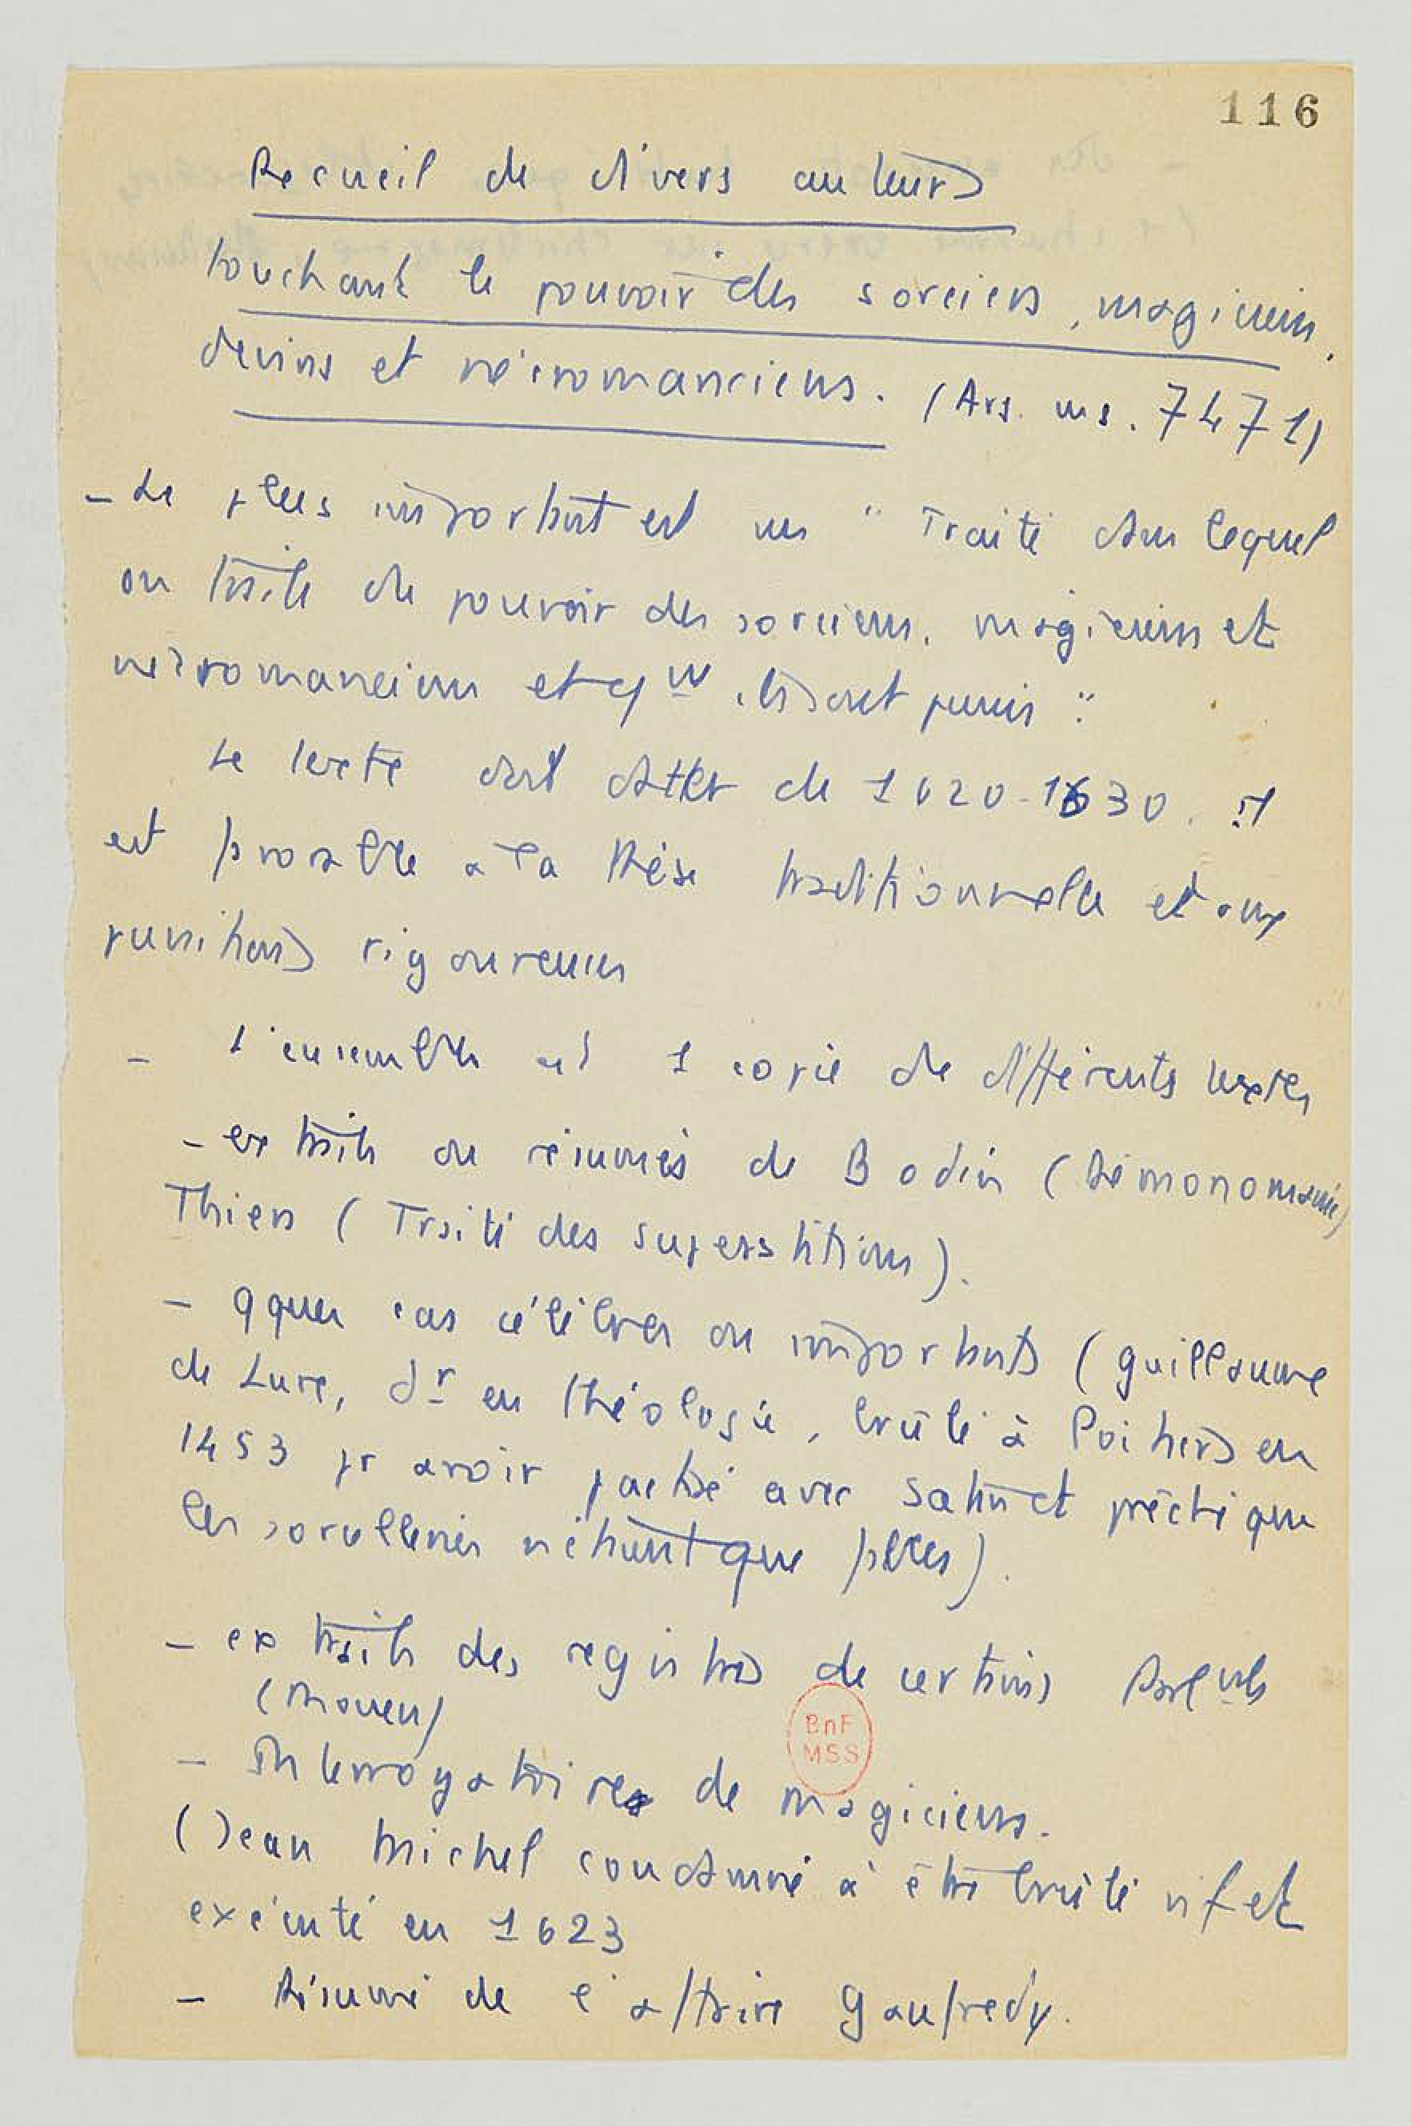 116
Recueil de divers auteurs
touchant le pouvoir des sorciers, magiciens,
devins et nécromanciens. (Ars. ms. 7471)
- Le plus important est un "Traité dans lequel
on traite du pouvoir des sorciers, magiciens et
nécromanciens et qd ils sont punis".
Le texte doit dater de 1620-1630. Il
est favorable à la thèse traditionnelle et aux
punitions rigoureuses
- L'ensemble est 1 copie de différents textes
- extraits ou résumés de Bodin (Démonomanie)
Thiers (Traité des superstitions).
- qques cas célèbres ou importants (Guillaume
de Lure, dr en théologie, brûlé à Poitiers en
1453 pr avoir pactisé avec Satan et prêché que
les sorcelleries n'étaient que fables).
- extraits des registres de certains Parlnts
(Rouen)
- Interrogatoires de magiciens.
(Jean Michel condamné à être brûlé vif et
exécuté en 1623
- Résumé de l'affaire Gaufredy.
BnF
MSS